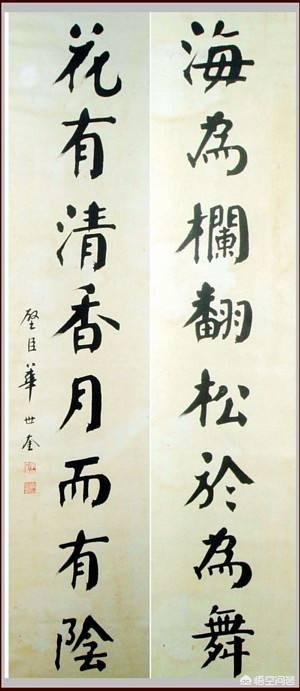 海為欄翻松於為舞
花有清香月而有陰
璧臣華世奎
悟空问答